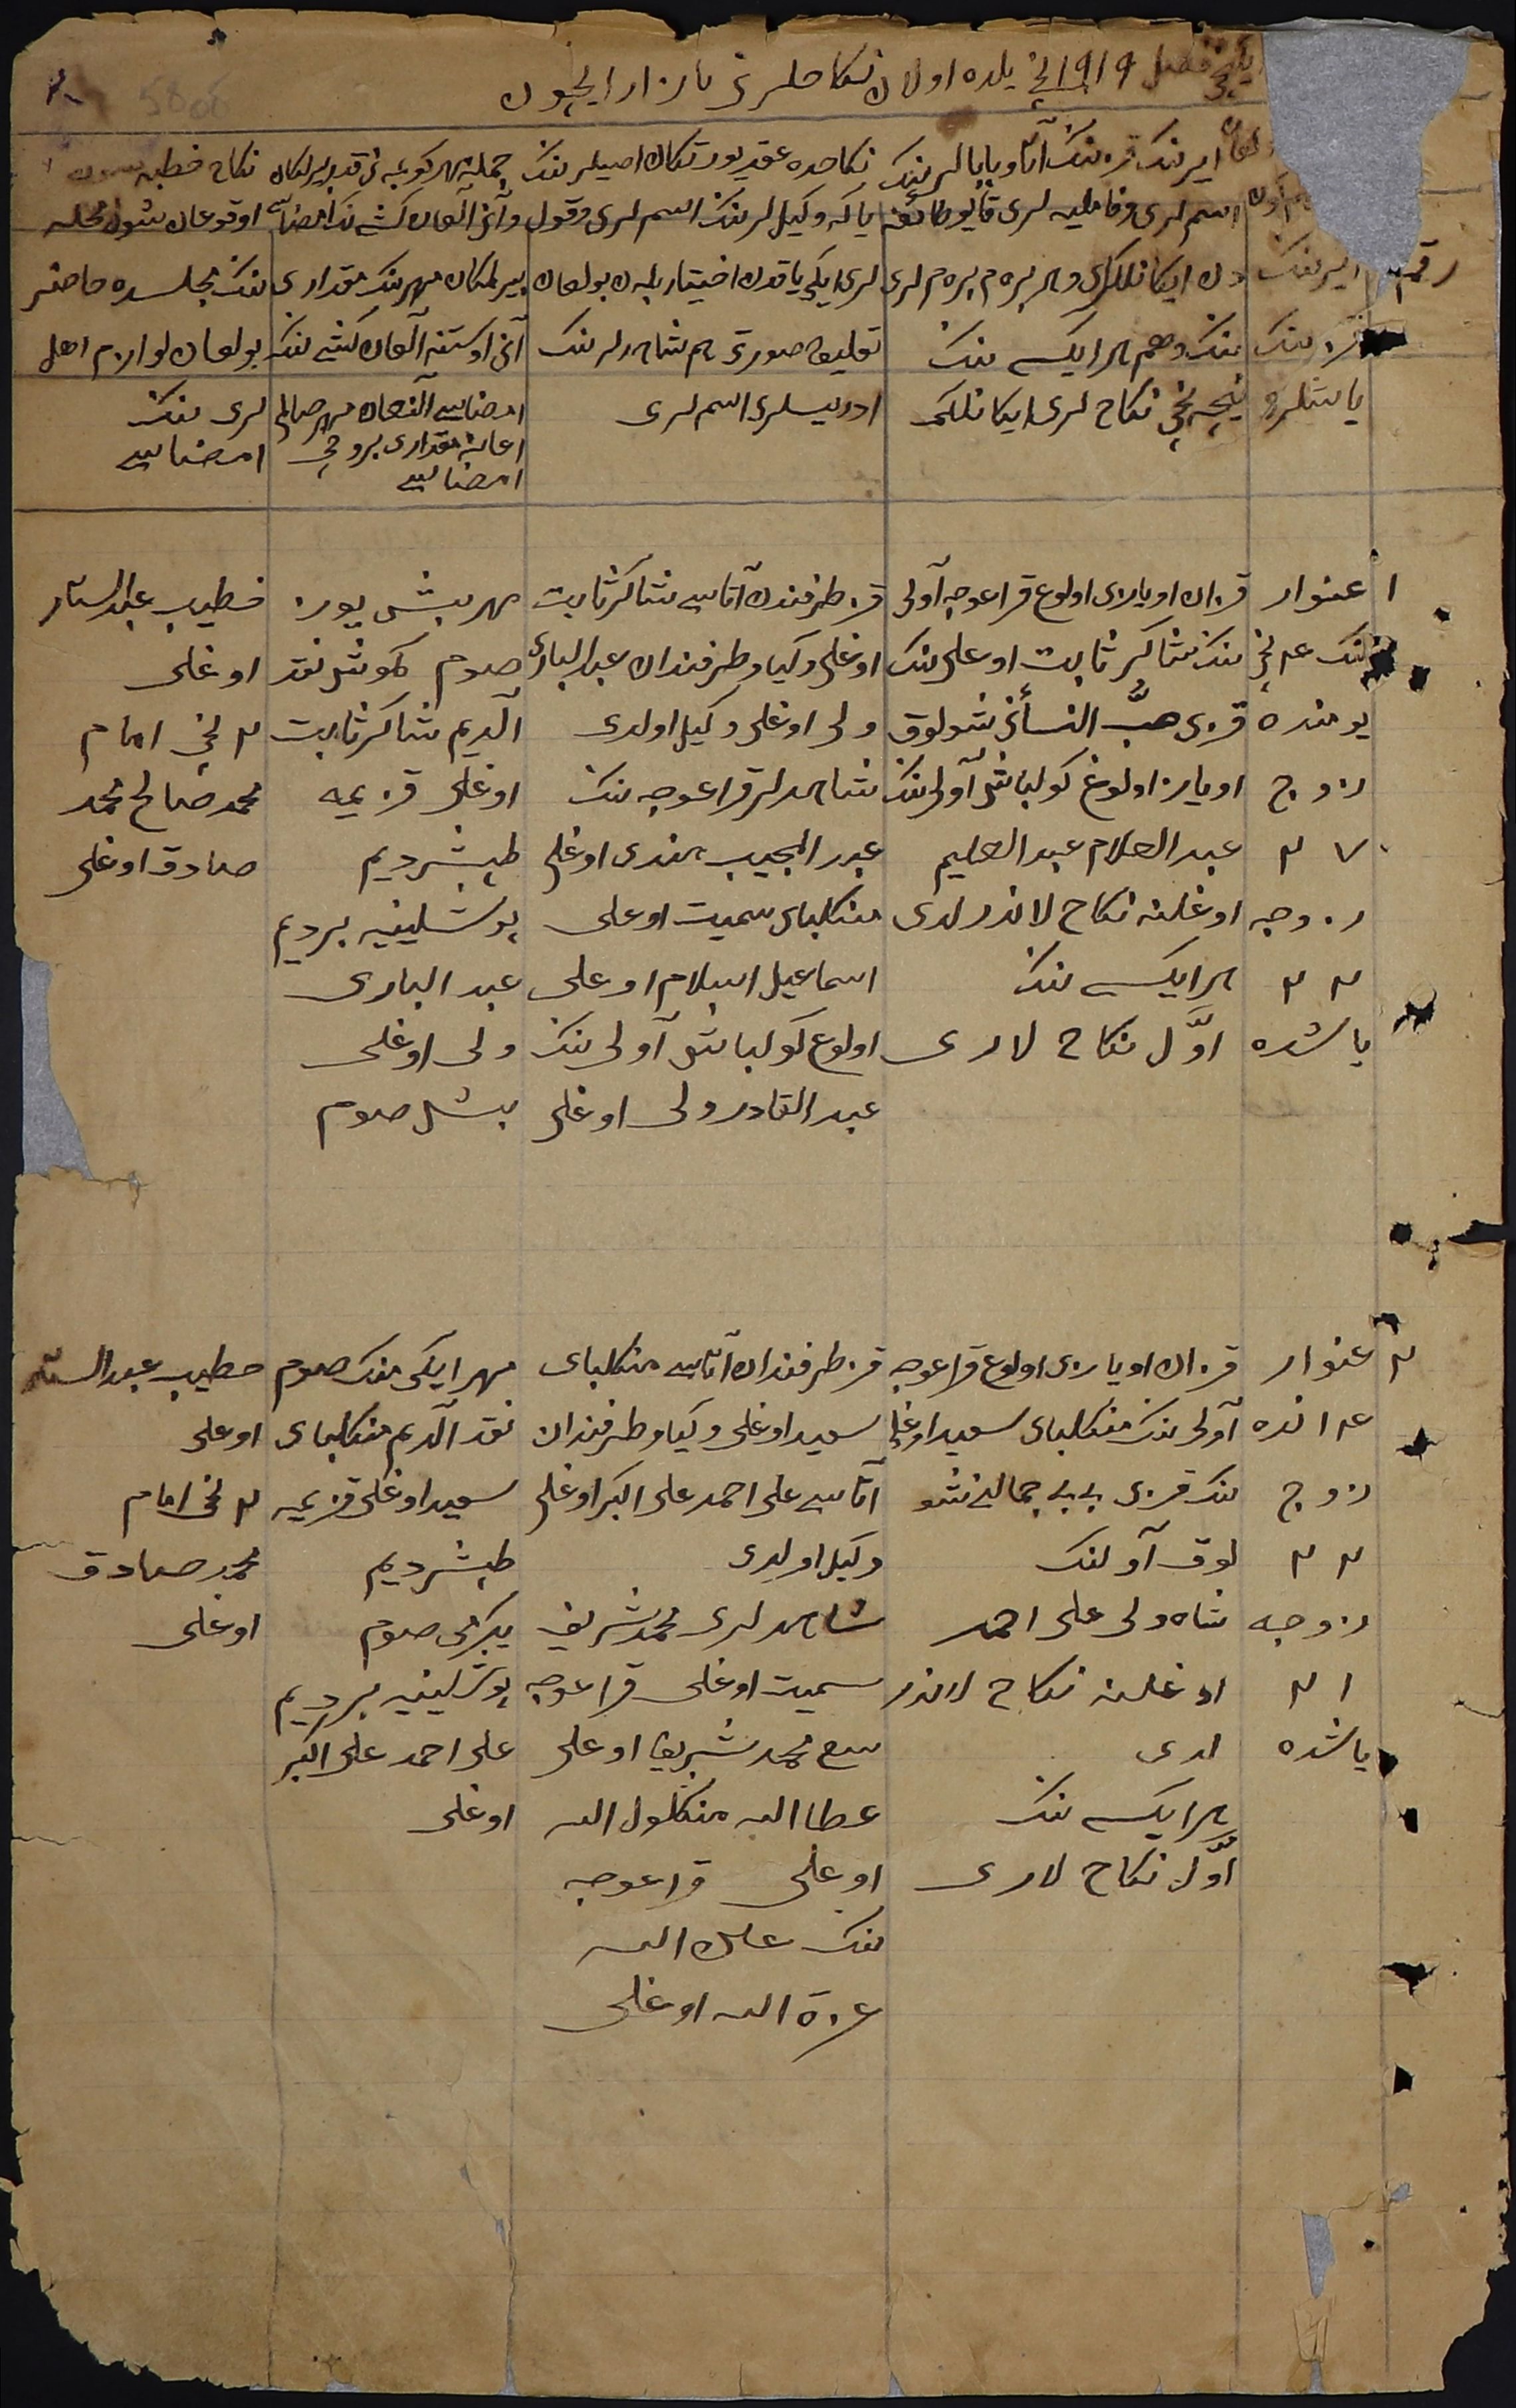 ایکنچی فصل 1919 نچی یلده اولان نکاحلرنی یازار ایچون
ایرننک قزننک آتا و بابالرننک
اسم لری و فامیلیه لری قایو طائفه
دن ایکانلکلری و هر برم برم لری
ننک و هم هر ایکیسی ننک
نیچه نچی نکاح لری ایکانلکی
نکاحده عقد یورتکان اصیللرننک
یا که وکیل لرننک اسم لری و قول
لری ایکی یاقدن اختیار بلەن بولغان
تعلیق صورتی هم شاهدلرننک
ادریسلری اسم لری
جمله مهر کو عبەنی قدر بیرلکان
و آنی آلغان کشی ننک امضاسی
بیرلمکان مهرننک مقداری
آنی اوستنه آلغان کشی ننک
امضاسی آلنغان مهر صالمی
اعانه مقداری بروچی
امضاسی
نکاح خطبه سن
اوقوغان شول محله
ننک مجلسده حاضر
بولغان لوازم اهل
لری ننک
امضاسی
رقم
ایرننک
قزننک
یاشلری
۱
غنوار
ننک ۱۴ نچی
یومنده
زوج
۲۷
زوجه
۲۲
یاشده
قزان اویازی اولوغ قراعوجه آولی
ننک شاکر ثابت اوغلی ننک
قزی حبُّ النسأنی شولوق
اویاز اولوغ کولباش آولی ننک
عبد العلام عبد العلیم
اوغلینه نکاح لاندرلدی
هر ایکیسی ننک
اوّل نکاح لاری
قز طرفندن آتاسی شاکر ثابت
اوغلی و کیاو طرفندان عبد الباری
ولی اوغلی وکیل اولدی
شاهدلر قراعوجه ننک
عبد المجیب هندی اوغلی
منکلبای سمیت اوغلی
اسماعیل اسلام اوغلی
اولوغ کولباش آولی ننک
عبد القادر ولی اوغلی
مهر بیش یوز
صوم کوش نقد
آلدیم شاکر ثابت
اوغلی قزیمه
طبشردیم
یوشلینیه بردیم
عبد الباری
ولی اوغلی
بیش صوم
خطیب عبد الستار
اوغلی
۲ نچی امام
محمد صالح محمد
صادق اوغلی
۲
غنوار
۱۴ نده
زوج
۲۲
زوجه
۲۱
یاشده
قزان اویازی اولوغ قراعوجه
آولی ننک منکلبای سعید اوغلی
ننک قزی بی بی جمالنی شو
لوق آولنک
شاه ولی علی احمد
اوغلینه نکاح لاندر
لدی
هر ایکیسی ننک
اوّل نکاح لاری
قز طرفندان آتاسی منکلبای
سعید اوغلی و کیاو طرفیندان
آتاسی علی احمد علی اکبر اوغلی
وکیل اولدی
شاهدلری محمد شریف
سمیت اوغلی قراعوجه
محمد شریف اوغلی
عطا الله منکلول الله
اوغلی قراعوجه
ننک الله
عزة الله اوغلی
مهر ایکی منک صوم
نقد آلدیم منکلبای
سعید اوغلی قزیمه
طبشردیم
یکرمی صوم
یوشلینیه بردیم
علی احمد علی اکبر
اوغلی
خطیب عبد الستار
اوغلی
۲ نچی امام
محمد صادق
اوغلی